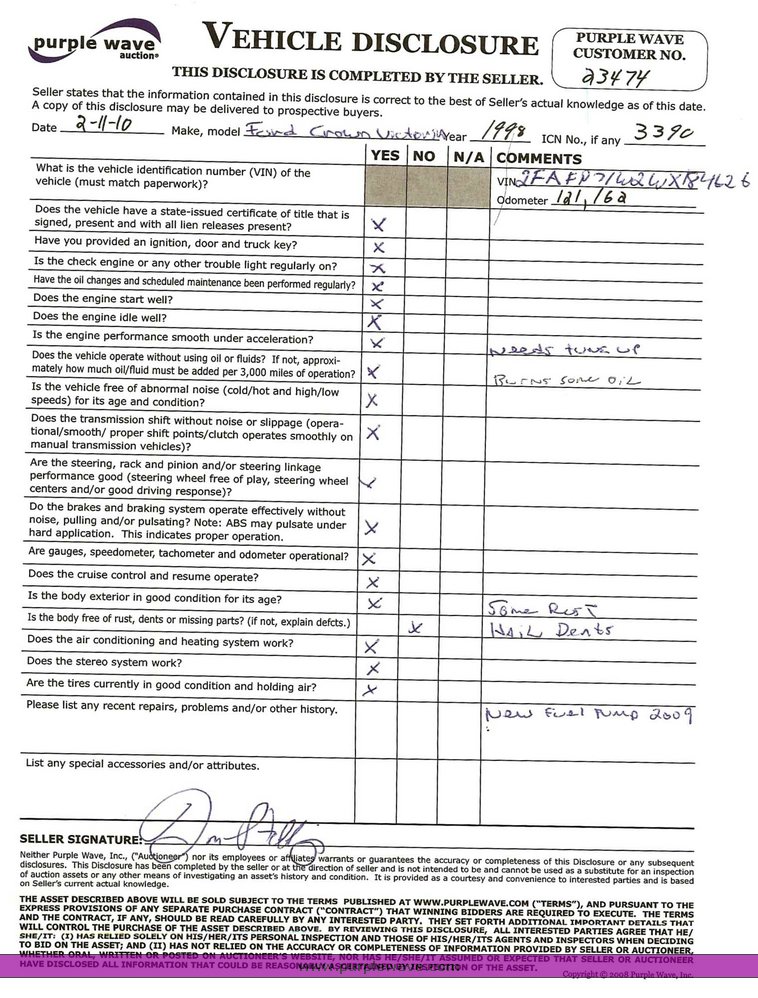 purple wave
auction®
VEHICLE DISCLOSURE
PURPLE WAVE
CUSTOMER NO.
23474
THIS DISCLOSURE IS COMPLETED BY THE SELLER.
Seller states that the information contained in this disclosure is correct to the best of Seller's actual knowledge as of this date.
A copy of this disclosure may be delivered to prospective buyers.
Date 2-11-10 Make, model Ford Crown Victoria Year 1998 ICN No., if any 3390
YES NO N/A COMMENTS
What is the vehicle identification number (VIN) of the
vehicle (must match paperwork)?
VIN
Odometer 121,162
Does the vehicle have a state-issued certificate of title that is
signed, present and with all lien releases present? X
Have you provided an ignition, door and truck key? X
Is the check engine or any other trouble light regularly on? X
Have the oil changes and scheduled maintenance been performed regularly? X
Does the engine start well? X
Does the engine idle well? X
Is the engine performance smooth under acceleration? X Needs tune up
Does the vehicle operate without using oil or fluids? If not, approxi-
mately how much oil/fluid must be added per 3,000 miles of operation? X Burns some oil
Is the vehicle free of abnormal noise (cold/hot and high/low
speeds) for its age and condition? X
Does the transmission shift without noise or slippage (opera-
tional/smooth/ proper shift points/clutch operates smoothly on
manual transmission vehicles)? X
Are the steering, rack and pinion and/or steering linkage
performance good (steering wheel free of play, steering wheel
centers and/or good driving response)? X
Do the brakes and braking system operate effectively without
noise, pulling and/or pulsating? Note: ABS may pulsate under
hard application. This indicates proper operation. X
Are gauges, speedometer, tachometer and odometer operational? X
Does the cruise control and resume operate? X
Is the body exterior in good condition for its age? X Some Rust
Is the body free of rust, dents or missing parts? (if not, explain defcts.) X Hail Dents
Does the air conditioning and heating system work? X
Does the stereo system work? X
Are the tires currently in good condition and holding air? X
Please list any recent repairs, problems and/or other history. New Fuel Pump 2009
List any special accessories and/or attributes.
SELLER SIGNATURE:
Neither Purple Wave, Inc., ("Auctioneer") nor its employees or affiliates warrants or guarantees the accuracy or completeness of this Disclosure or any subsequent
disclosures. This Disclosure has been completed by the seller or at the direction of seller and is not intended to and cannot be used as a substitute for an inspection
of auction assets or any other means of investigating an asset's history and condition. It is provided as a courtesy and convenience to interested parties and is based
on Seller's current actual knowledge.
THE ASSET DESCRIBED ABOVE WILL BE SOLD SUBJECT TO THE TERMS PUBLISHED AT WWW.PURPLEWAVE.COM ("TERMS"), AND PURSUANT TO THE
EXPRESS PROVISIONS OF ANY SEPARATE PURCHASE CONTRACT ("CONTRACT") THAT WINNING BIDDERS ARE REQUIRED TO EXECUTE. THE TERMS
AND THE CONTRACT, IF ANY, SHOULD BE READ CAREFULLY BY ANY INTERESTED PARTY. THEY SET FORTH ADDITIONAL IMPORTANT DETAILS THAT
WILL CONTROL THE PURCHASE OF THE ASSET DESCRIBED ABOVE. BY REVIEWING THIS DISCLOSURE, ALL INTERESTED PARTIES AGREE THAT HE/
SHE/IT: (I) HAS RELIED SOLELY ON HIS/HER/ITS PERSONAL INSPECTION AND THOSE OF HIS/HER/ITS AGENTS AND INSPECTORS WHEN DECIDING
TO BID ON THE ASSET; AND (II) HAS NOT RELIED ON THE ACCURACY OR COMPLETENESS OF INFORMATION PROVIDED BY SELLER OR AUCTIONEER,
WHETHER ORAL, WRITTEN OR POSTED ON AUCTIONEER'S WEBSITE, NOR HAS HE/SHE/IT ASSUMED OR EXPECTED THAT SELLER OR AUCTIONEER
HAVE DISCLOSED ALL INFORMATION THAT COULD BE REASONABLY ASCERTAINED BY INSPECTION OF THE ASSET.
www.purplewave.com
Copyright © 2008 Purple Wave, Inc.